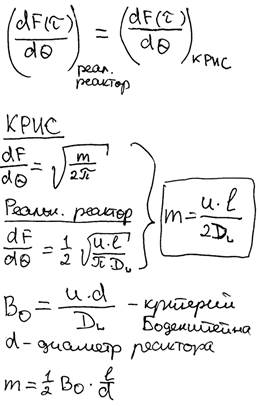 (dF(τ)/dΘ) реал. реактор = (dF(τ)/dΘ) КРИС
КРИС
dF/dΘ = √(m/2π)
Реальн. реактор
dF/dΘ = 1/2 √(u·l/πD_L)
m = u·l/2D_L
Bo = u·d/D_L - критерий Боденштейна
d - диаметр реактора
m = 1/2 Bo · l/d